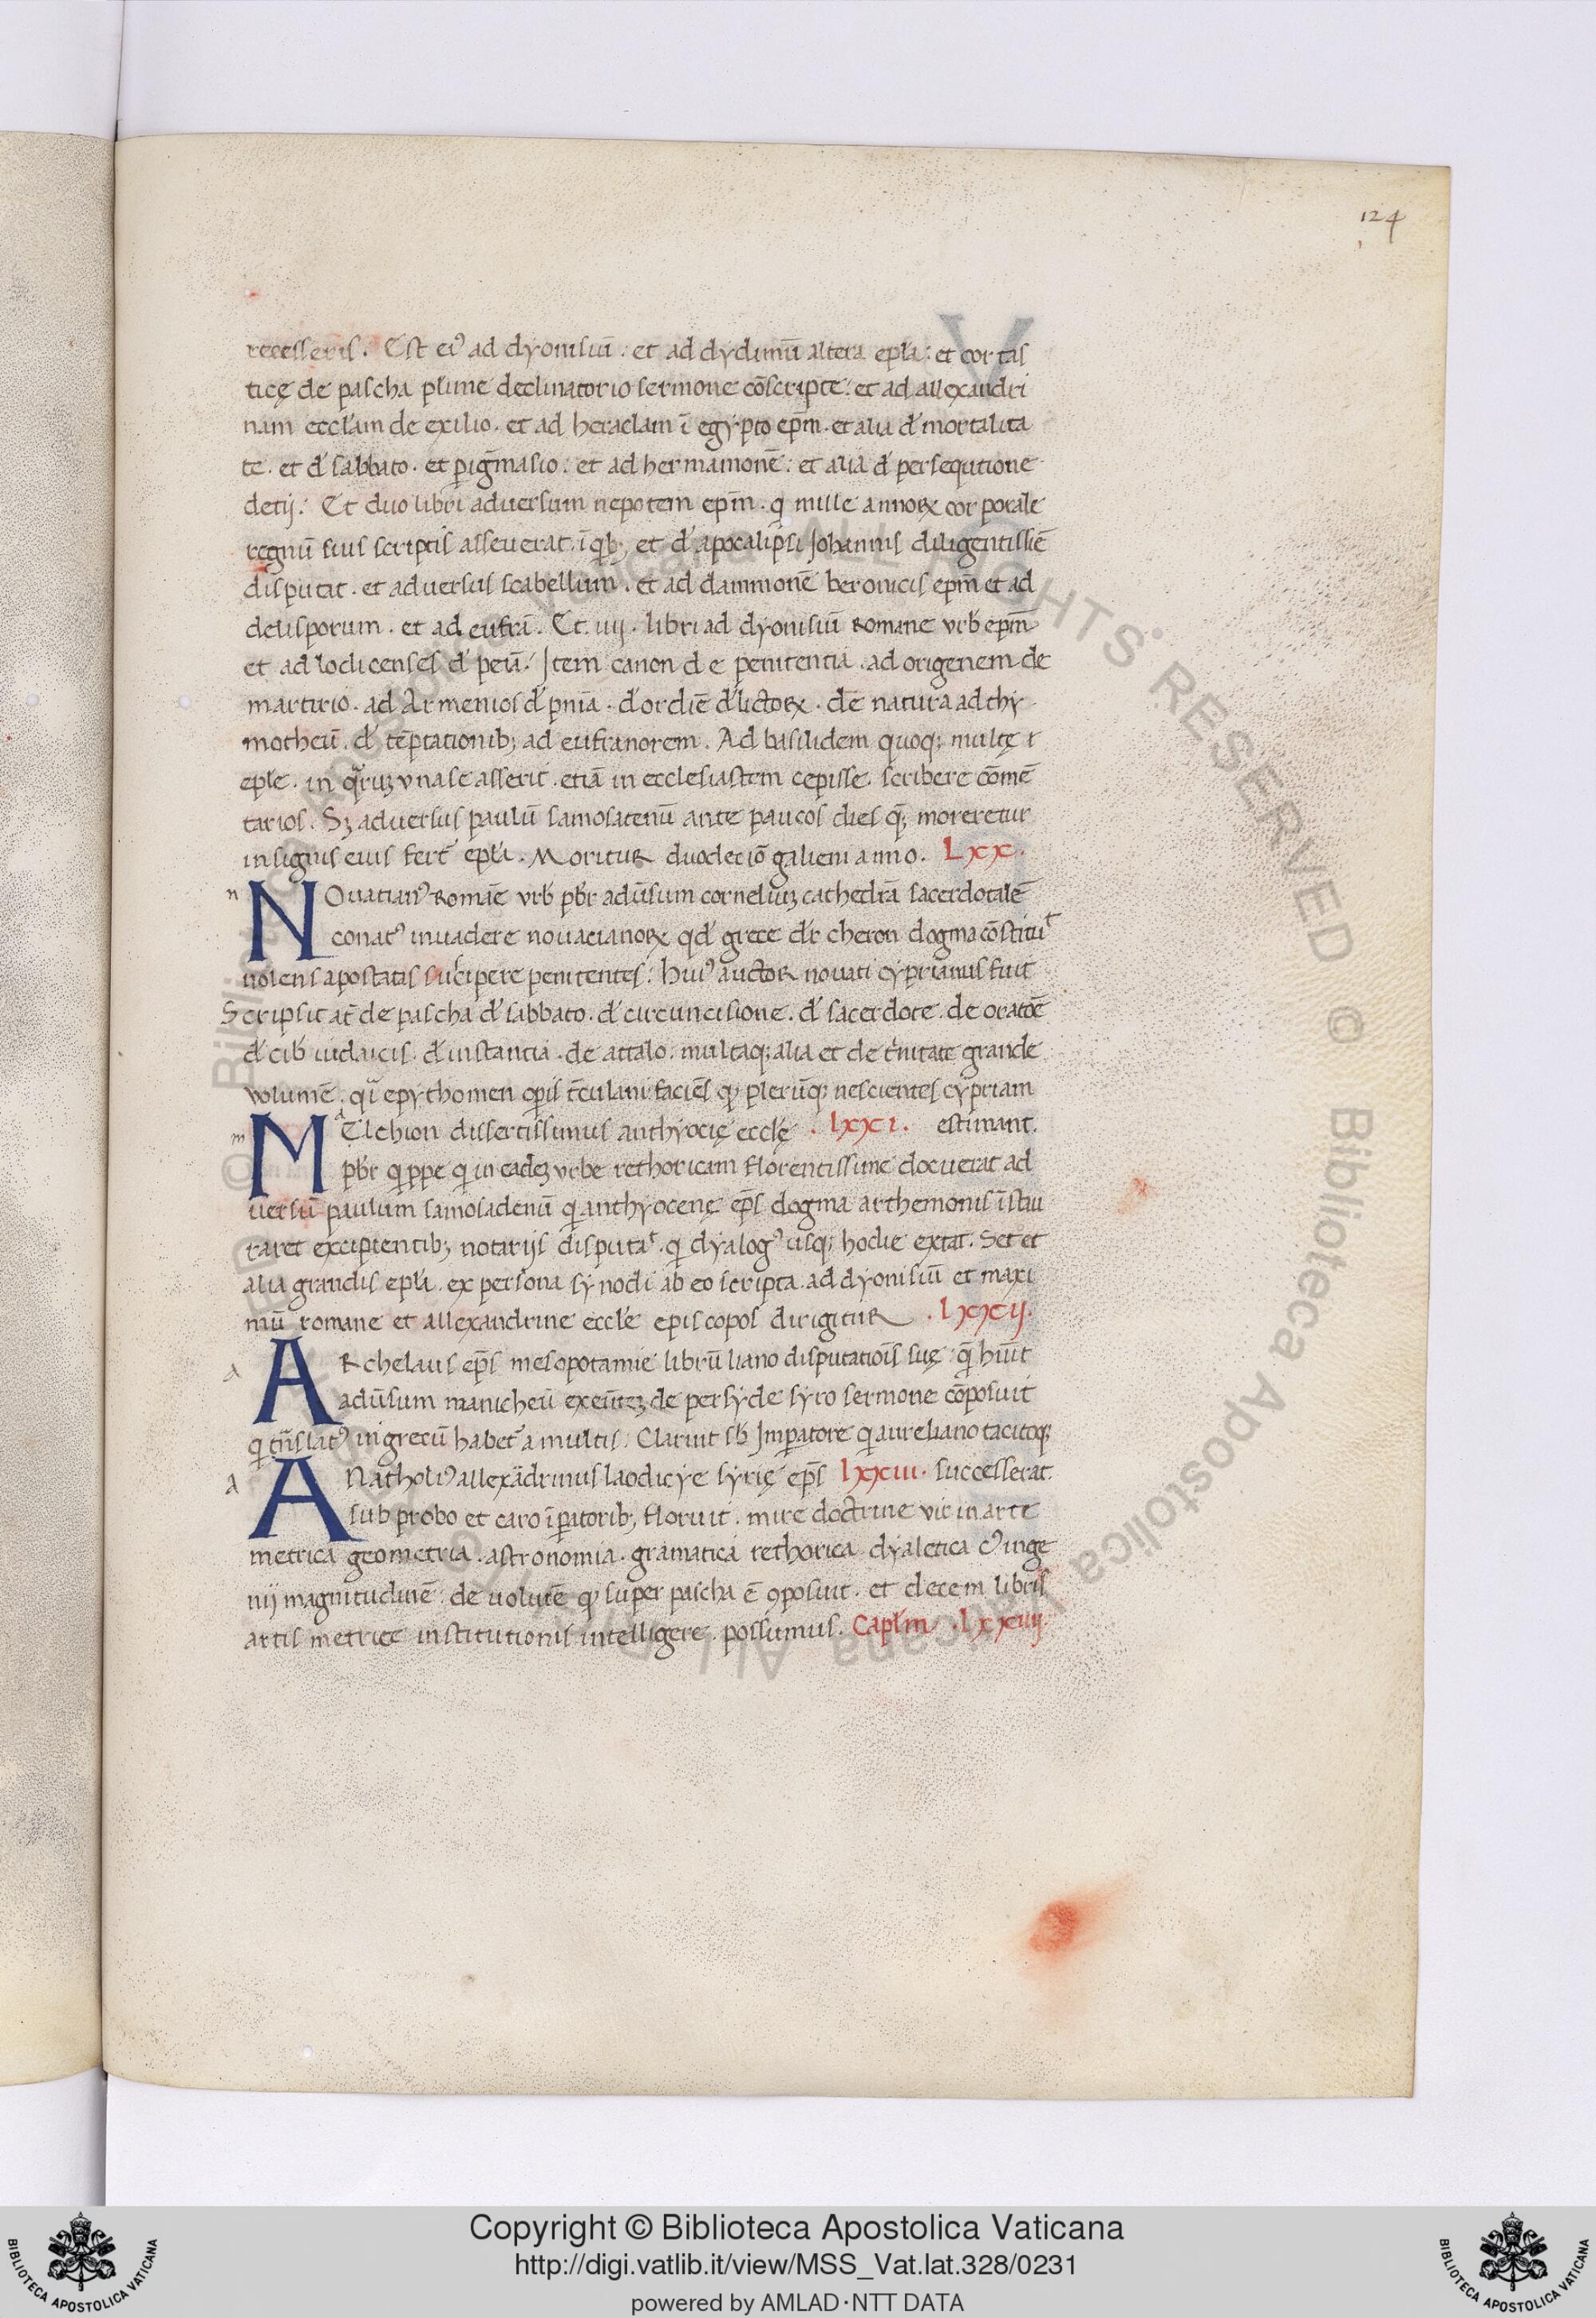 124
recesseris. Est ei⁹ ad dyonisiū: et ad dydimū altera epl̄a: et cortas
ticę de pascha pl̄ime declinatorio sermone cōscripte: et ad allexandri
nam eccl̄am de exilio. et ad heraclam ī egypto ep̄m. et alia d̄ mortalita
te. et d̄ sabbato. et pigm̄asio: et ad hermāmonē: et alia d̄ persequtione
detij: Et duo libri adversum nepotem ep̄m. qͥ mille annoꝝ corporale
regnū suis scriptis asseuerat. ī qͥbꝫ et d̄ apocalipsi Johannis diligentissīē
disputat. et adversus scabellum. et ad dammonē beronicis ep̄m et ad
detisporum. et ad eufrā. Et. iiij. libri ad dyonisiū Romane vrb̄ ep̄m
et ad lodicenses d̄ peū. Item canon de penitentia. ad origenem de
martirio. ad Armenios d̄ pn̄ia. d̄ ordiē d̄lictoꝝ. dē natura ad thy
motheū. d̄ tēptationibꝫ ad eufranorem. Ad basilidem quoqꝫ multę t
epl̄e. in qͣruꝫ vna se asserit. etiā in ecclesiastem cepisse scribere cōmē
tarios. Sꝫ adversus paulū samosatenū ante paucos dies qͣꝫ moreretur
insignis eius fert̄ epl̄a. Moritur duodeciō galieni anno. Lxx.
n
NOuatian⁹ Romāe vrb̄ pb̄r adūsum corneliuꝫ cathedrā sacerdotalē
conat⁹ invadere novacianoꝝ qd̄ grece dr̄ cheron dogma cōstituͭ
nolens apostatas suscipere penitentes: Hui⁹ auctor novati cyprianus fuit
Scripsit at̄ de pascha d̄ sabbato. d̄ circuncisione. d̄ sacerdote. de oratōe
d̄ cib̄ iudaicis. d̄ instantia. de attalo. multaqꝫ alia et de tͥnitate grande
volumē. qͣi epythomen opis t̄culani faciēs qꝫ plerūqꝫ nescientes cyprian
m
MElchion dissertissimus anthyocię ecclę . lxxi. estimant.
pb̄r qͥppe qͥ in eadeꝫ vrbe rethoricam florentissime docuerat ad
uersū paulum samosadenū qͥ anthyocenę ep̄s dogma arthemonis īstau
raret excipientibꝫ notarijs disputaͭ. qͥ dyalog⁹ usqꝫ hodie extat. Set et
alia grandis epl̄a. ex persona synodi ab eo scripta. ad dyonisiū et maxi
mū romane et allexandrine eccl̄e episcopos dirigitur .lxxij.
a
ARchelaus ep̄s mesopotamie librū liano disputatiōis suę. qͣ̄ hūit
adūsum manicheū exeūteꝫ de persyde syro sermone cōposuit
qͥ trn̄slat⁹ in grecū habet᷑ a multis. Claruit sb̄ Imperatore qͥ aureliano tacitoqꝫ
a
ANatholi⁹ allexādrinus laodicye syrię ep̄s lxxiii. successerat.
sub probo et caro īperatoribꝫ floruit. mire doctrine vir in arte
metrica geometria. astronomia. gramatica rethorica dyaletica c⁹ inge
nij magnitudinē. de volutē qꝫ super pascha ē ꝯposuit. et decem libris
artis metrice institutionis intelligere. possumus. Capl̄m .lxxiiij.
Copyright © Biblioteca Apostolica Vaticana
http://digi.vatlib.it/view/MSS_Vat.lat.328/0231
powered by AMLAD·NTT DATA